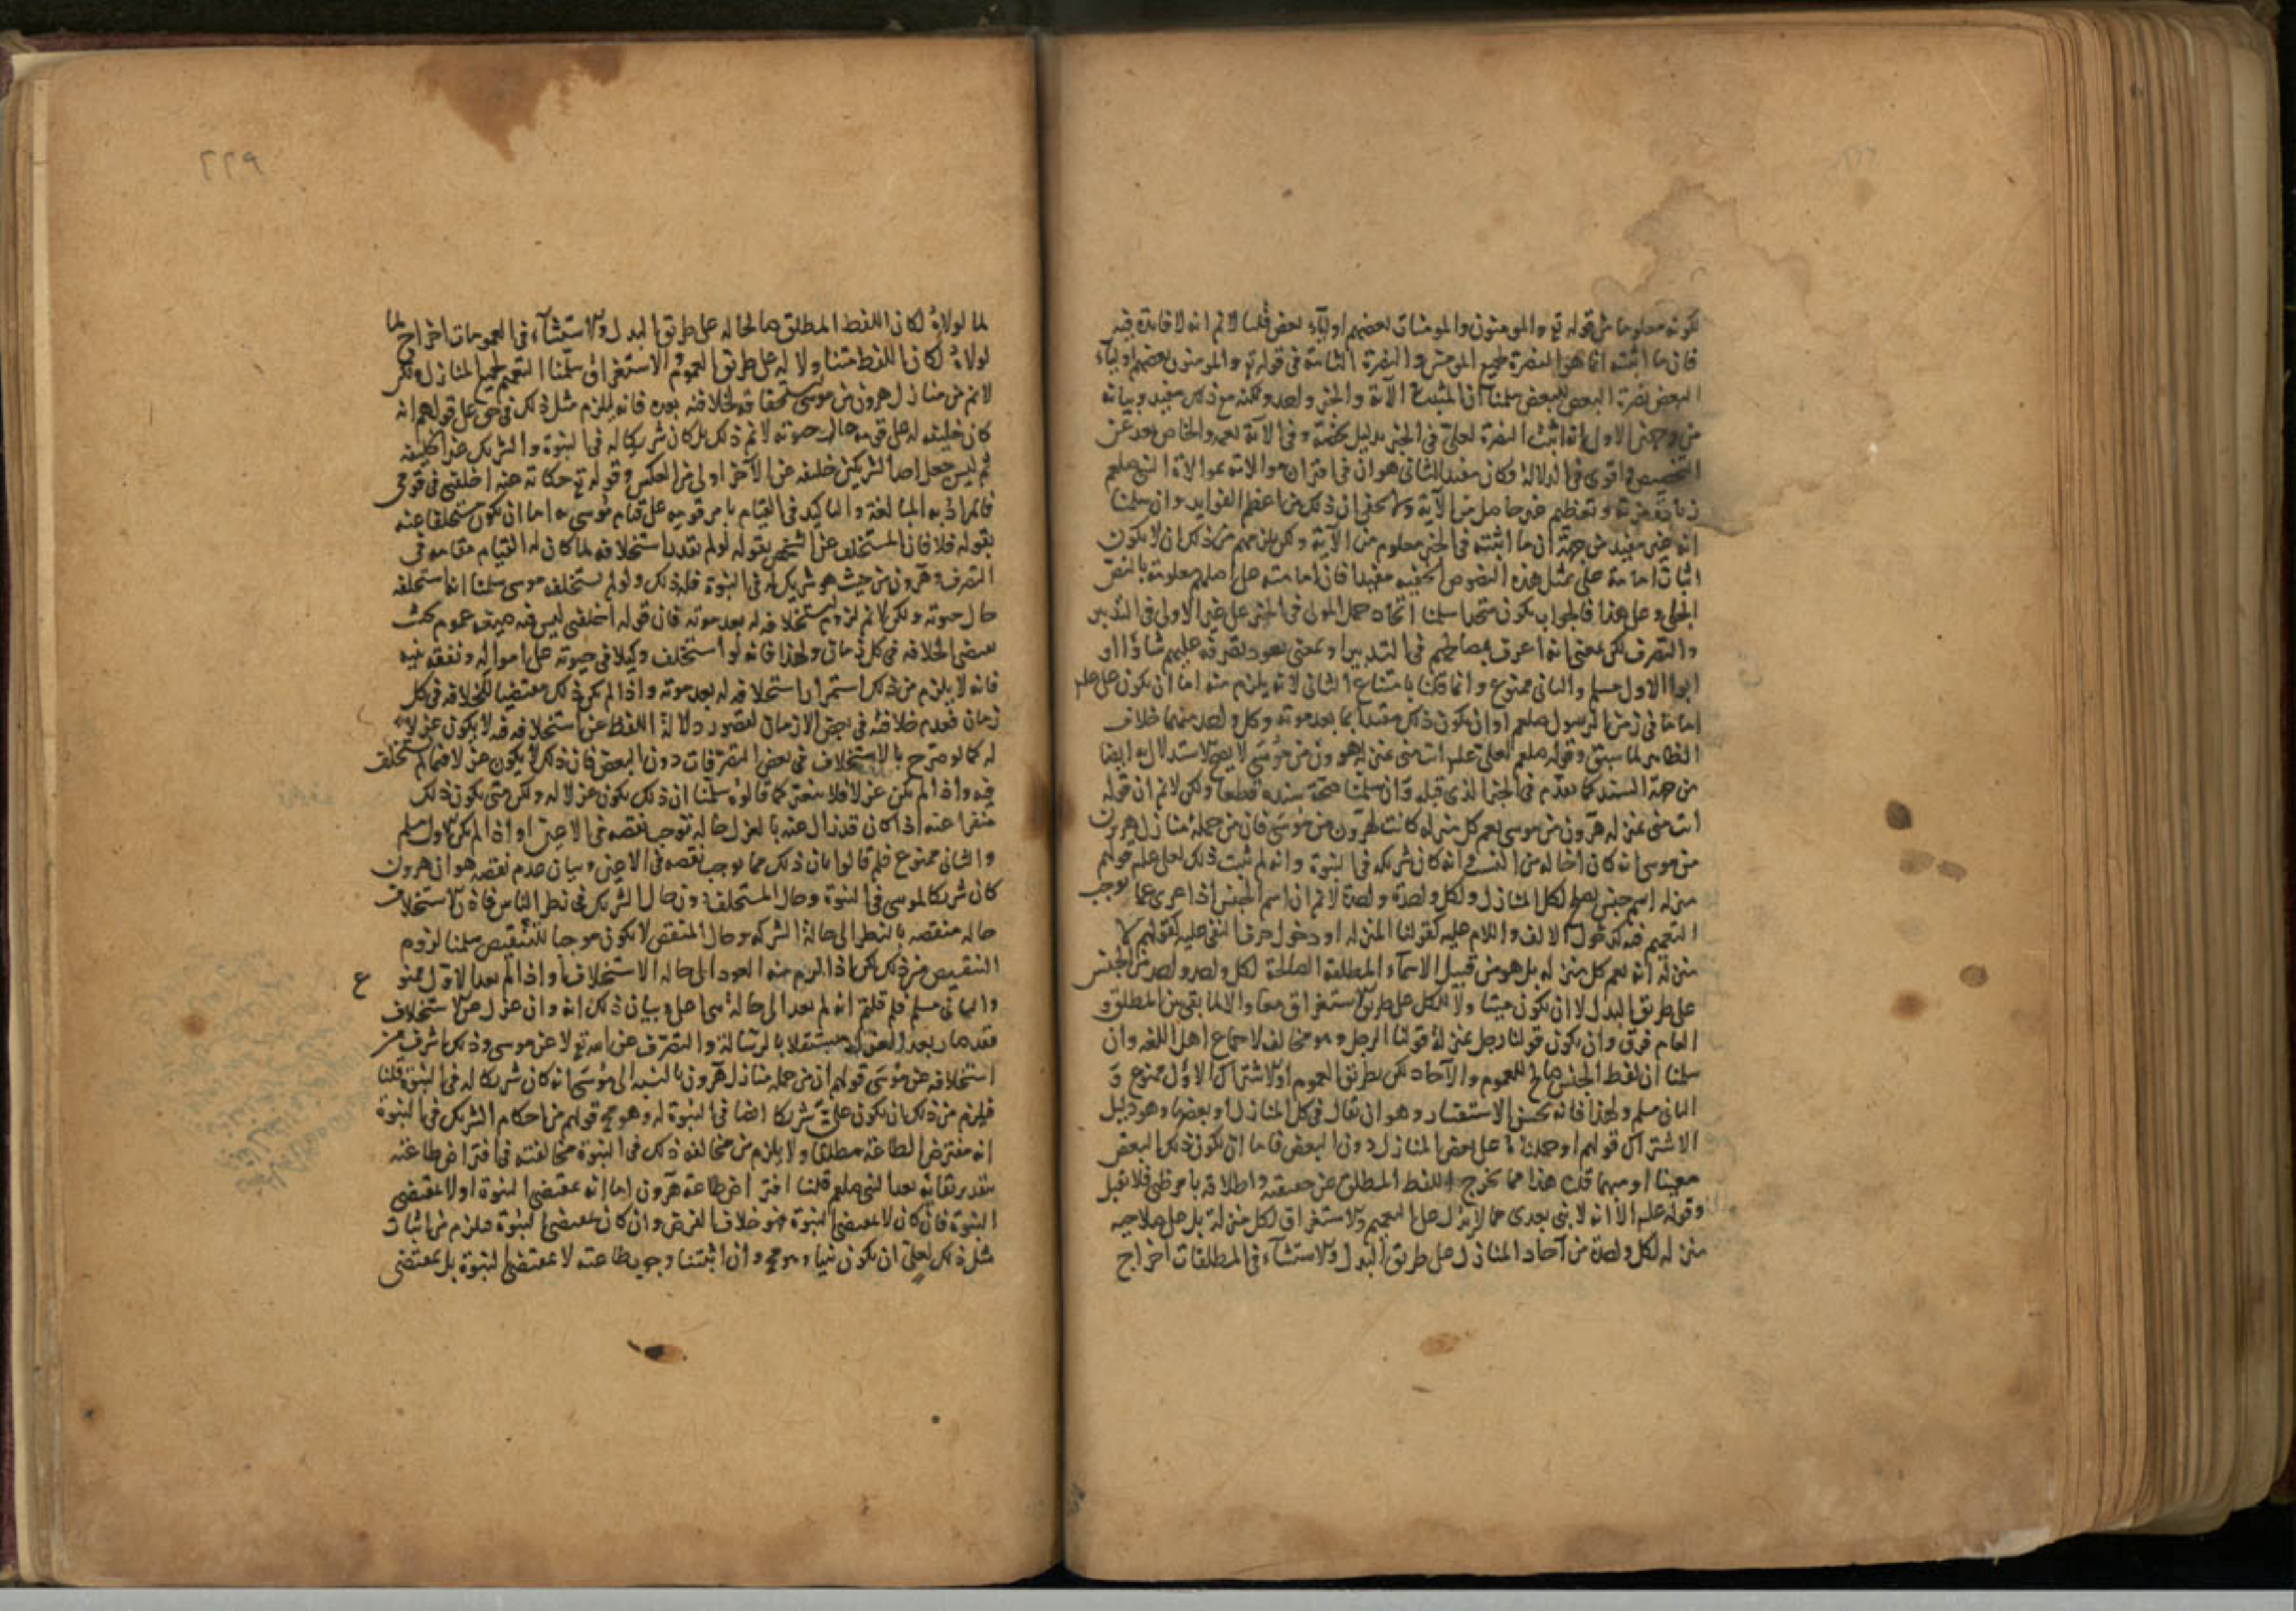 كونه معلوما من قوله تع والمومنون والمومنات بعضهم اوليآء بعض قلنا لا نم انه لا فايدة فيه
فان ما اثبته انما هو النصرة لجميع المومنين والنصرة الثابتة في قوله تع والمومنون بعضهم اوليآء
البعض نصرة البعض للبعض سلمنا ان المثبت في الآية والخبر واحد ولكنه مع ذلك مفيد وبيانه
من وجهين الاول انه اثبت النصرة لعلي في الخبر بدليل يخصه وفي الآية يعمه والخاص بعد عن
التخصيص واقوى في الدلالة وكان مفيدا الثاني هو ان في اقتران موالاته بموالاة النبي صلعم
زيادة وتعظيم غير حاصل من الآية ولا يخفى ان ذلك من اعظم الفوايد وان سلمنا
انه غير مفيد من جهة ان ما اثبته في الخبر معلوم من الآية ولكن يلزمهم من ذلك ان لا يكون
اثبات امامة علي بمثل هذه النصوص الخفية مفيدا فان امامته على اصلهم معلومة بالنص
الجلي وعلى هذا فالجواب يكون متحدا سلمنا اتحاد حمل المولى في الخبر على غير الاولى في التدبير
والتصرف لكن بمعنى انه اعرف بمصالحهم في التدبير او بمعنى نفوذ تصرفه عليهم شاؤا او
ابوا الاول مسلم والثاني ممنوع وانما قلنا بامتناع الثاني لانه يلزم منه اما ان يكون علي علم
اماما في زمن الرسول صلعم او ان يكون ذلك مقيدا بما بعد موته وكل واحد منهما خلاف
الظاهر لما سبق وقوله صلعم لعلي علم انت مني بمنزلة هرون من موسى لا يصح الاستدلال به ايضا
من جهة السند كما تقدم في الخبر الذي قبله وان سلمنا صحة سنده قطعا ولكن لا نم ان قوله
انت مني بمنزلة هرون من موسى يعم كل منزلة كانت لهرون من موسى فان من جملة منازل هرون
من موسى انه كان اخا له من النسب وانه كان شريكه في النبوة وانه لم يثبت ذلك لعلي علم قولهم
منزلة اسم جنس صالح لكل المنازل ولكل واحدة واحدة لا نم ان اسم الجنس اذا عري عما يوجب
التعميم فيه كدخول الالف واللام عليه كقولنا المنزلة او دخول حرف النفي عليه كقولهم لا
منزلة انه يعم كل منزلة بل هو من قبيل الاسمآء المطلقة الصالحة لكل واحد واحد من الجنس
على طريق البدل لا ان يكون متناولا للكل على طريق الاستغراق معا والا لما بقي بين المطلق و
العام فرق وان يكون قولنا رجل بمنزلة قولنا الرجل وهو مخالف لاجماع اهل اللغه وان
سلمنا ان لفظ الجنس صالح للعموم والآحاد لكن بطريق العموم او الاشتراك الاول ممنوع و
الثاني مسلم ولهذا فانه يحسن الاستفسار وهو ان يقال في كل المنازل او بعضها وهو دليل
الاشتراك قولهم او حملناه على بعض المنازل دون البعض فاما ان يكون ذلك البعض
معينا او مبهما قلنا هذا مما يخرج اللفظ المطلق عن حقيقته واطلاقه بامر ظني فلا يقبل
وقوله علم الا انه لا نبي بعدي مما لا يدل على التعميم والاستغراق لكل منزلة بل على صلاحيه
منزلة لكل واحدة من آحاد المنازل على طريق البدل والاستثناء في المطلقات اخراج
٢٢٩
لما لولاه لكان اللفظ المطلق صالحا له على طريق البدل والاستثنآء في العمومات اخراج لما
لولاه لكان اللفظ متناولا له على طريق العموم والاستغراق سلمنا التعميم لجميع المنازل ولكن
لا نم ان من منازل هرون من موسى استحقاقه لخلافته بعده فانه يلزم مثل ذلك في حق علي قولهم انه
كان خليفه له على قومه حال حيوته لا نم ذلك بل كان شريكا له في النبوة والشريك غير الخليفه
ثم ليس جعل احد الشريكين خليفه عن الآخر اولى من العكس وقوله تع حكاية عنه اخلفني في قومي
فالمراد به المبالغة والتاكيد في القيام بامر قومه على قيام موسى به اما ان يكون مستخلفا عنه
بقوله فلا فان المستخلف عن الشخص بقوله لو لم يقدر استخلافه لما كان له القيام مقامه في
التصرف وهرون من حيث هو شريك له في النبوة فله ذلك ولو لم يستخلفه موسى سلمنا انه استخلفه
حال حيوته ولكن لا نم لزوم استخلافه له بعد موته فان قوله اخلفني ليس فيه صيغة عموم بحيث
يقتضي الخلافه في كل زمان ولهذا فانه لو استخلف وكيلا في حيوته على امواله ونفقه بنيه
فانه لا يلزم من ذلك استمرار استخلافه له بعد موته واذا لم يكن ذلك مقتضيا للخلافه في كل
زمان فعدم خلافته في بعض الازمان لقصور دلالة اللفظ عن استخلافه فيه لا يكون عزلا
له كما لو صرح بالاستخلاف في بعض التصرفات دون البعض فان ذلك لا يكون عزلا فيما لم يستخلف
فيه واذا لم يكن عزلا فلا ينفر كما قالوه سلمنا ان ذلك يكون عزلا له ولكن متى يكون ذلك
منفرا عنه اذا كان قد زال عنه بالعزل حالة توجب نقصه في الاعين او اذا لم يكن الاول مسلم
والثاني ممنوع فلم قالوا بان ذلك مما يوجب نقصه في الاعين وبيان عدم نقصه هو ان هرون
كان شريكا لموسى في النبوة وحال المستخلف دون حال الشريك في نظر الناس فاذن الاستخلاف
حاله منقصه بالنظر الى حالة الشركه وحال المنقص لا يكون موجبا للتنقيص سلمنا لزوم
التنقيص من ذلك لكن اذا لزم منه العود الى حاله الاستخلاف او اذا لم يعد الاول ممنوع
والثاني مسلم فلم قلتم انه لم يعد الى حالة هي اعلى وبيان ذلك انه وان عزل عن الاستخلاف
فقد صار بعد العزل مستقلا بالرسالة والتصرف عن الله تع لا عن موسى وذلك اشرف من
استخلافه عن موسى قولهم ان من جمله منازل هرون بالنسبه الى موسى انه كان شريكا له في النبوة قلنا
فيلزم من ذلك ان يكون علي شريكا ايضا في النبوة له وهو مح قولهم من احكام الشريك في النبوة
انه مفترض الطاعة مطلقا ولا يلزم من مخالفه ذلك في النبوة مخالفته في افتراض طاعته
بتقدير بقايه بعد النبي صلعم قلنا افتراض طاعة هرون اما انه بمقتضى النبوة او لا بمقتضى
النبوة فان كان لا بمقتضى النبوة فهو خلاف الفرض وان كان بمقتضى النبوة فيلزم من اثبات
مثل ذلك لعلي ان يكون نبيا وهو مح وان اثبتنا وجوب طاعته لا بمقتضى النبوة بل بمقتضى